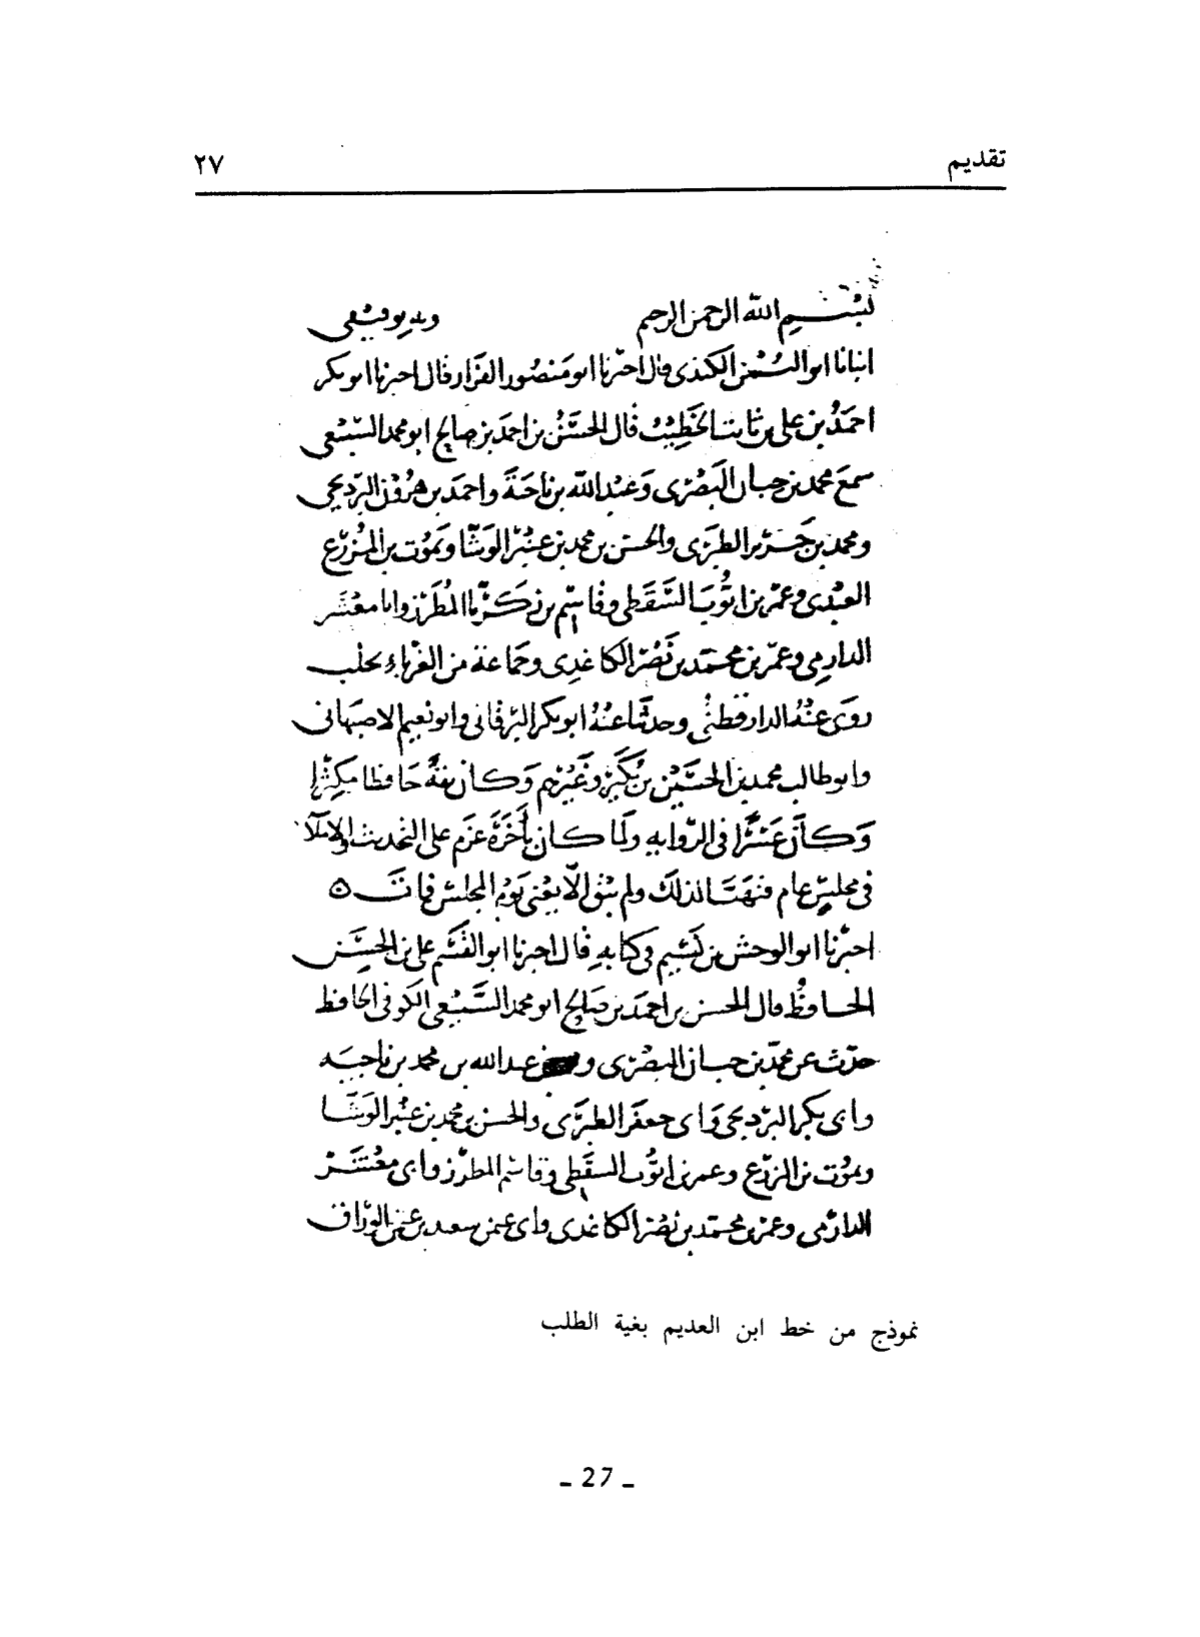 تقديم
٢٧
بسم الله الرحمن الرحيم وبه توفيقي
انبانا ابو اليمن الكندي قال اخبرنا ابو منصور القزاز قال اخبرنا ابو بكر
احمد بن علي بن ثابت الخطيب قال الحسن بن احمد بن صالح ابو محمد السبيعي
سمع محمد بن حبان البصري وعبد الله بن ناجية واحمد بن هرون البرديجي
ومحمد بن جرير الطبري والحسن بن محمد بن عنبر الوشا ويموت بن المزرع
العبدي وعمر بن ايوب السقطي وقاسم بن زكريا المطرز وابا معشر
الدارمي وعمر بن محمد بن نصر الكاغدي وجماعة من الغرباء بحلب
روى عنه الدارقطني وحدثنا عنه ابو بكر البرقاني وابو نعيم الاصبهاني
وابو طالب محمد بن الحسين بن بكير وغيرهم وكان ثقة حافظا مكثرا
وكان عسرا في الرواية ولما كان بأخرة عزم على التحديث والاملآ
في مجلس عام فتهيأ لذلك ولم يبق الا يعني يوم المجلس فمات ه
اخبرنا ابو الوحش بن نسيم في كتابه قال اخبرنا ابو القسم علي بن الحسن
الحافظ قال الحسن بن احمد بن صالح ابو محمد السبيعي الكوفي الحافظ
حدث عن محمد بن حبان البصري و عبد الله بن محمد بن ناجيه
وابي بكر البرديجي وابي جعفر الطبري والحسن بن محمد بن عنبر الوشا
ويموت بن المزرع وعمر بن ايوب السقطي وقاسم المطرز وابي معشر
الدارمي وعمر بن محمد بن نصر الكاغدي وابي عمر سعيد بن الوراق
نموذج من خط ابن العديم بغية الطلب
- 27 -